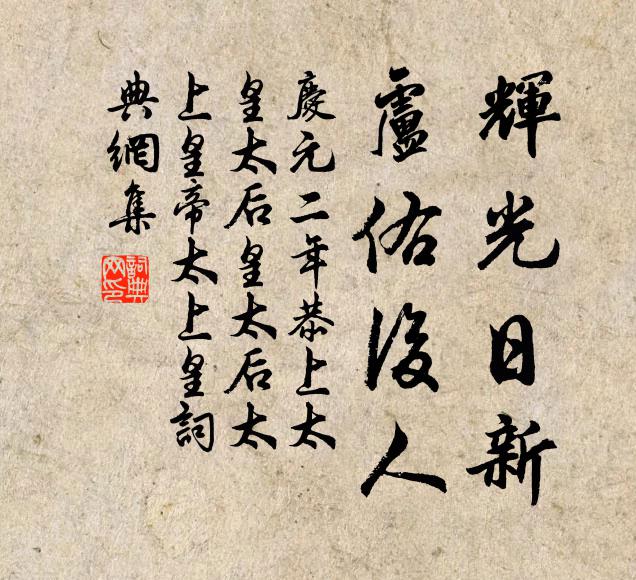 輝光日新
盧佑後人
慶元二年恭上太
皇太后皇太后太
上皇帝太上皇詞
典網集
詞典
网印